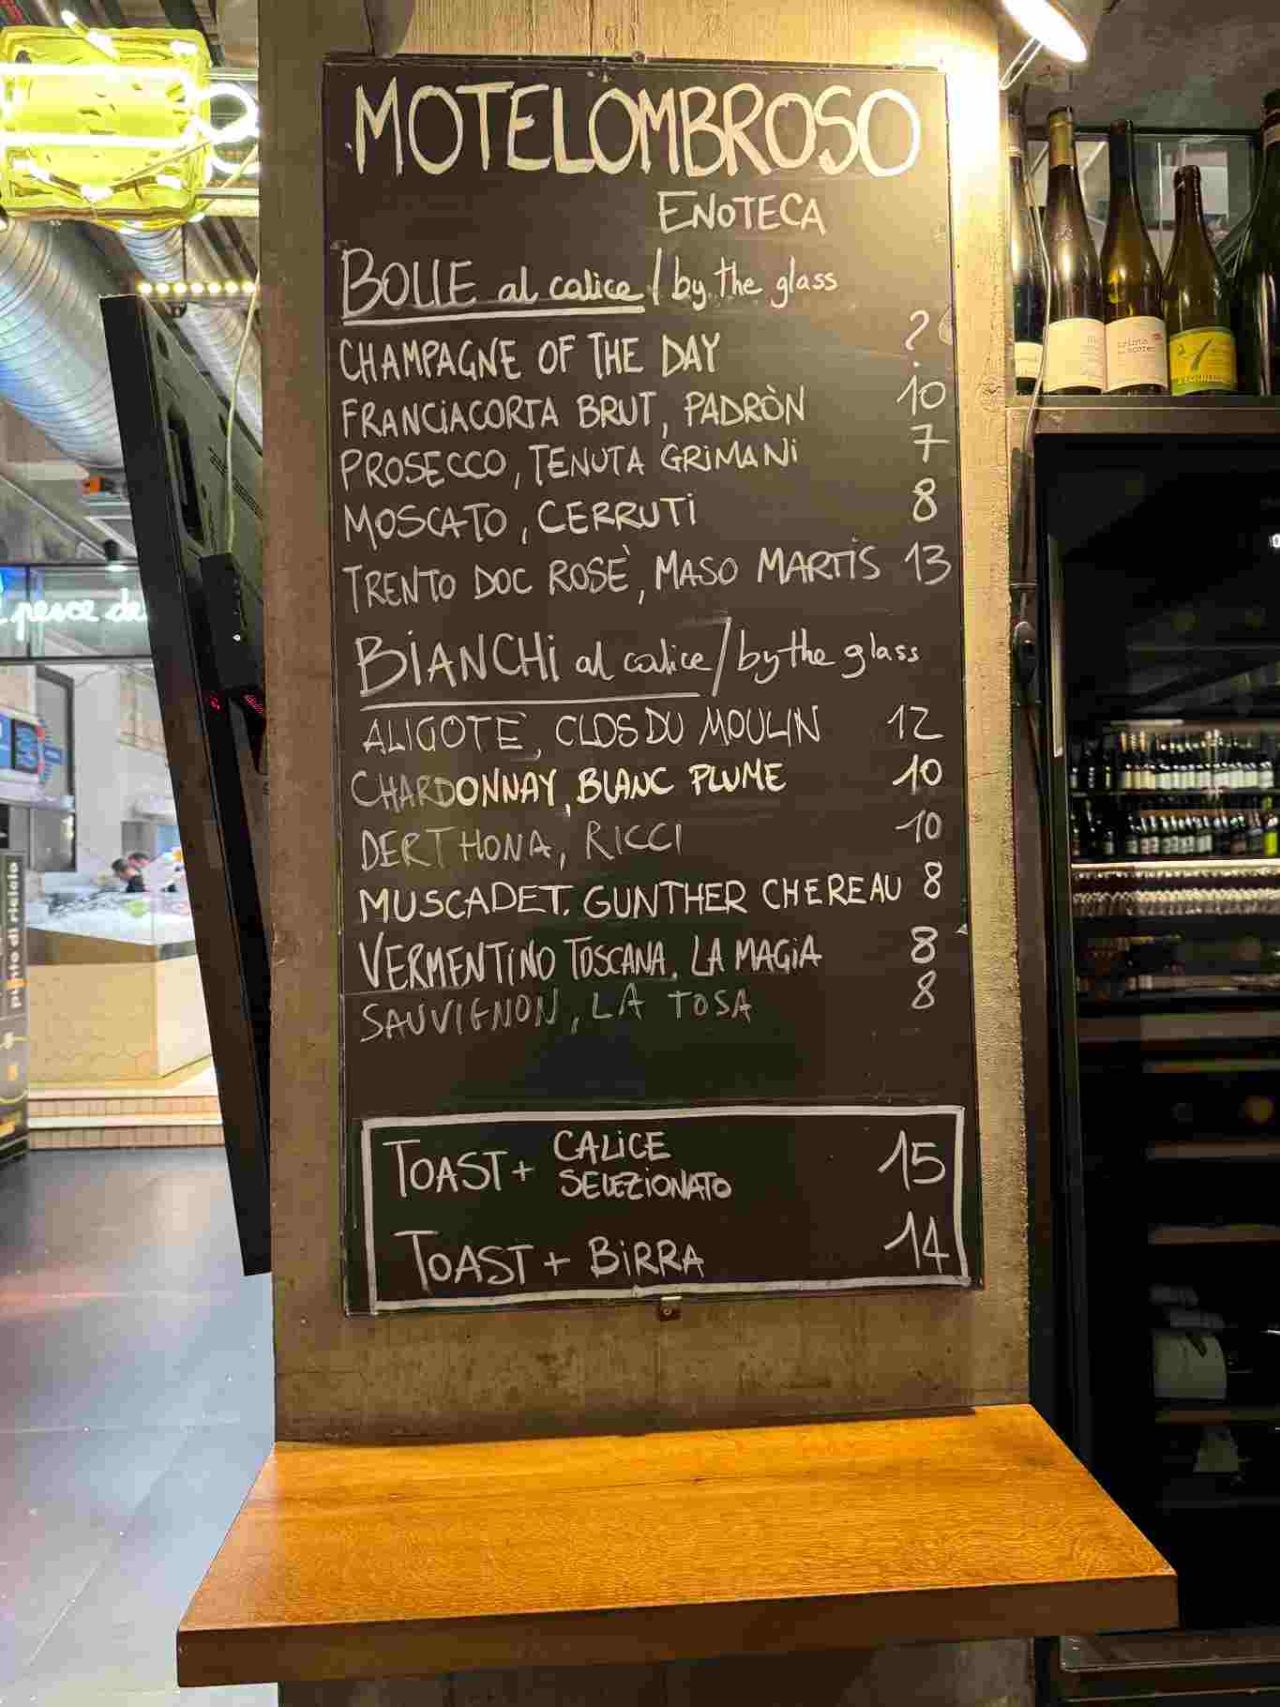 MOTELOMBROSO
ENOTECA
BOLLE al calice / by the glass
CHAMPAGNE OF THE DAY ?
FRANCIACORTA BRUT, PADRÒN 10
PROSECCO, TENUTA GRIMANI 7
MOSCATO, CERRUTI 8
TRENTO DOC ROSÈ, MASO MARTIS 13
BIANCHI al calice / by the glass
ALIGOTE, CLOS DU MOULIN 12
CHARDONNAY, BLANC PLUME 10
DERTHONA, RICCI 10
MUSCADET. GUNTHER CHEREAU 8
VERMENTINO TOSCANA, LA MAGIA 8
SAUVIGNON, LA TOSA 8
TOAST + CALICE SELEZIONATO 15
TOAST + BIRRA 14
pesce de
punto di riciclo